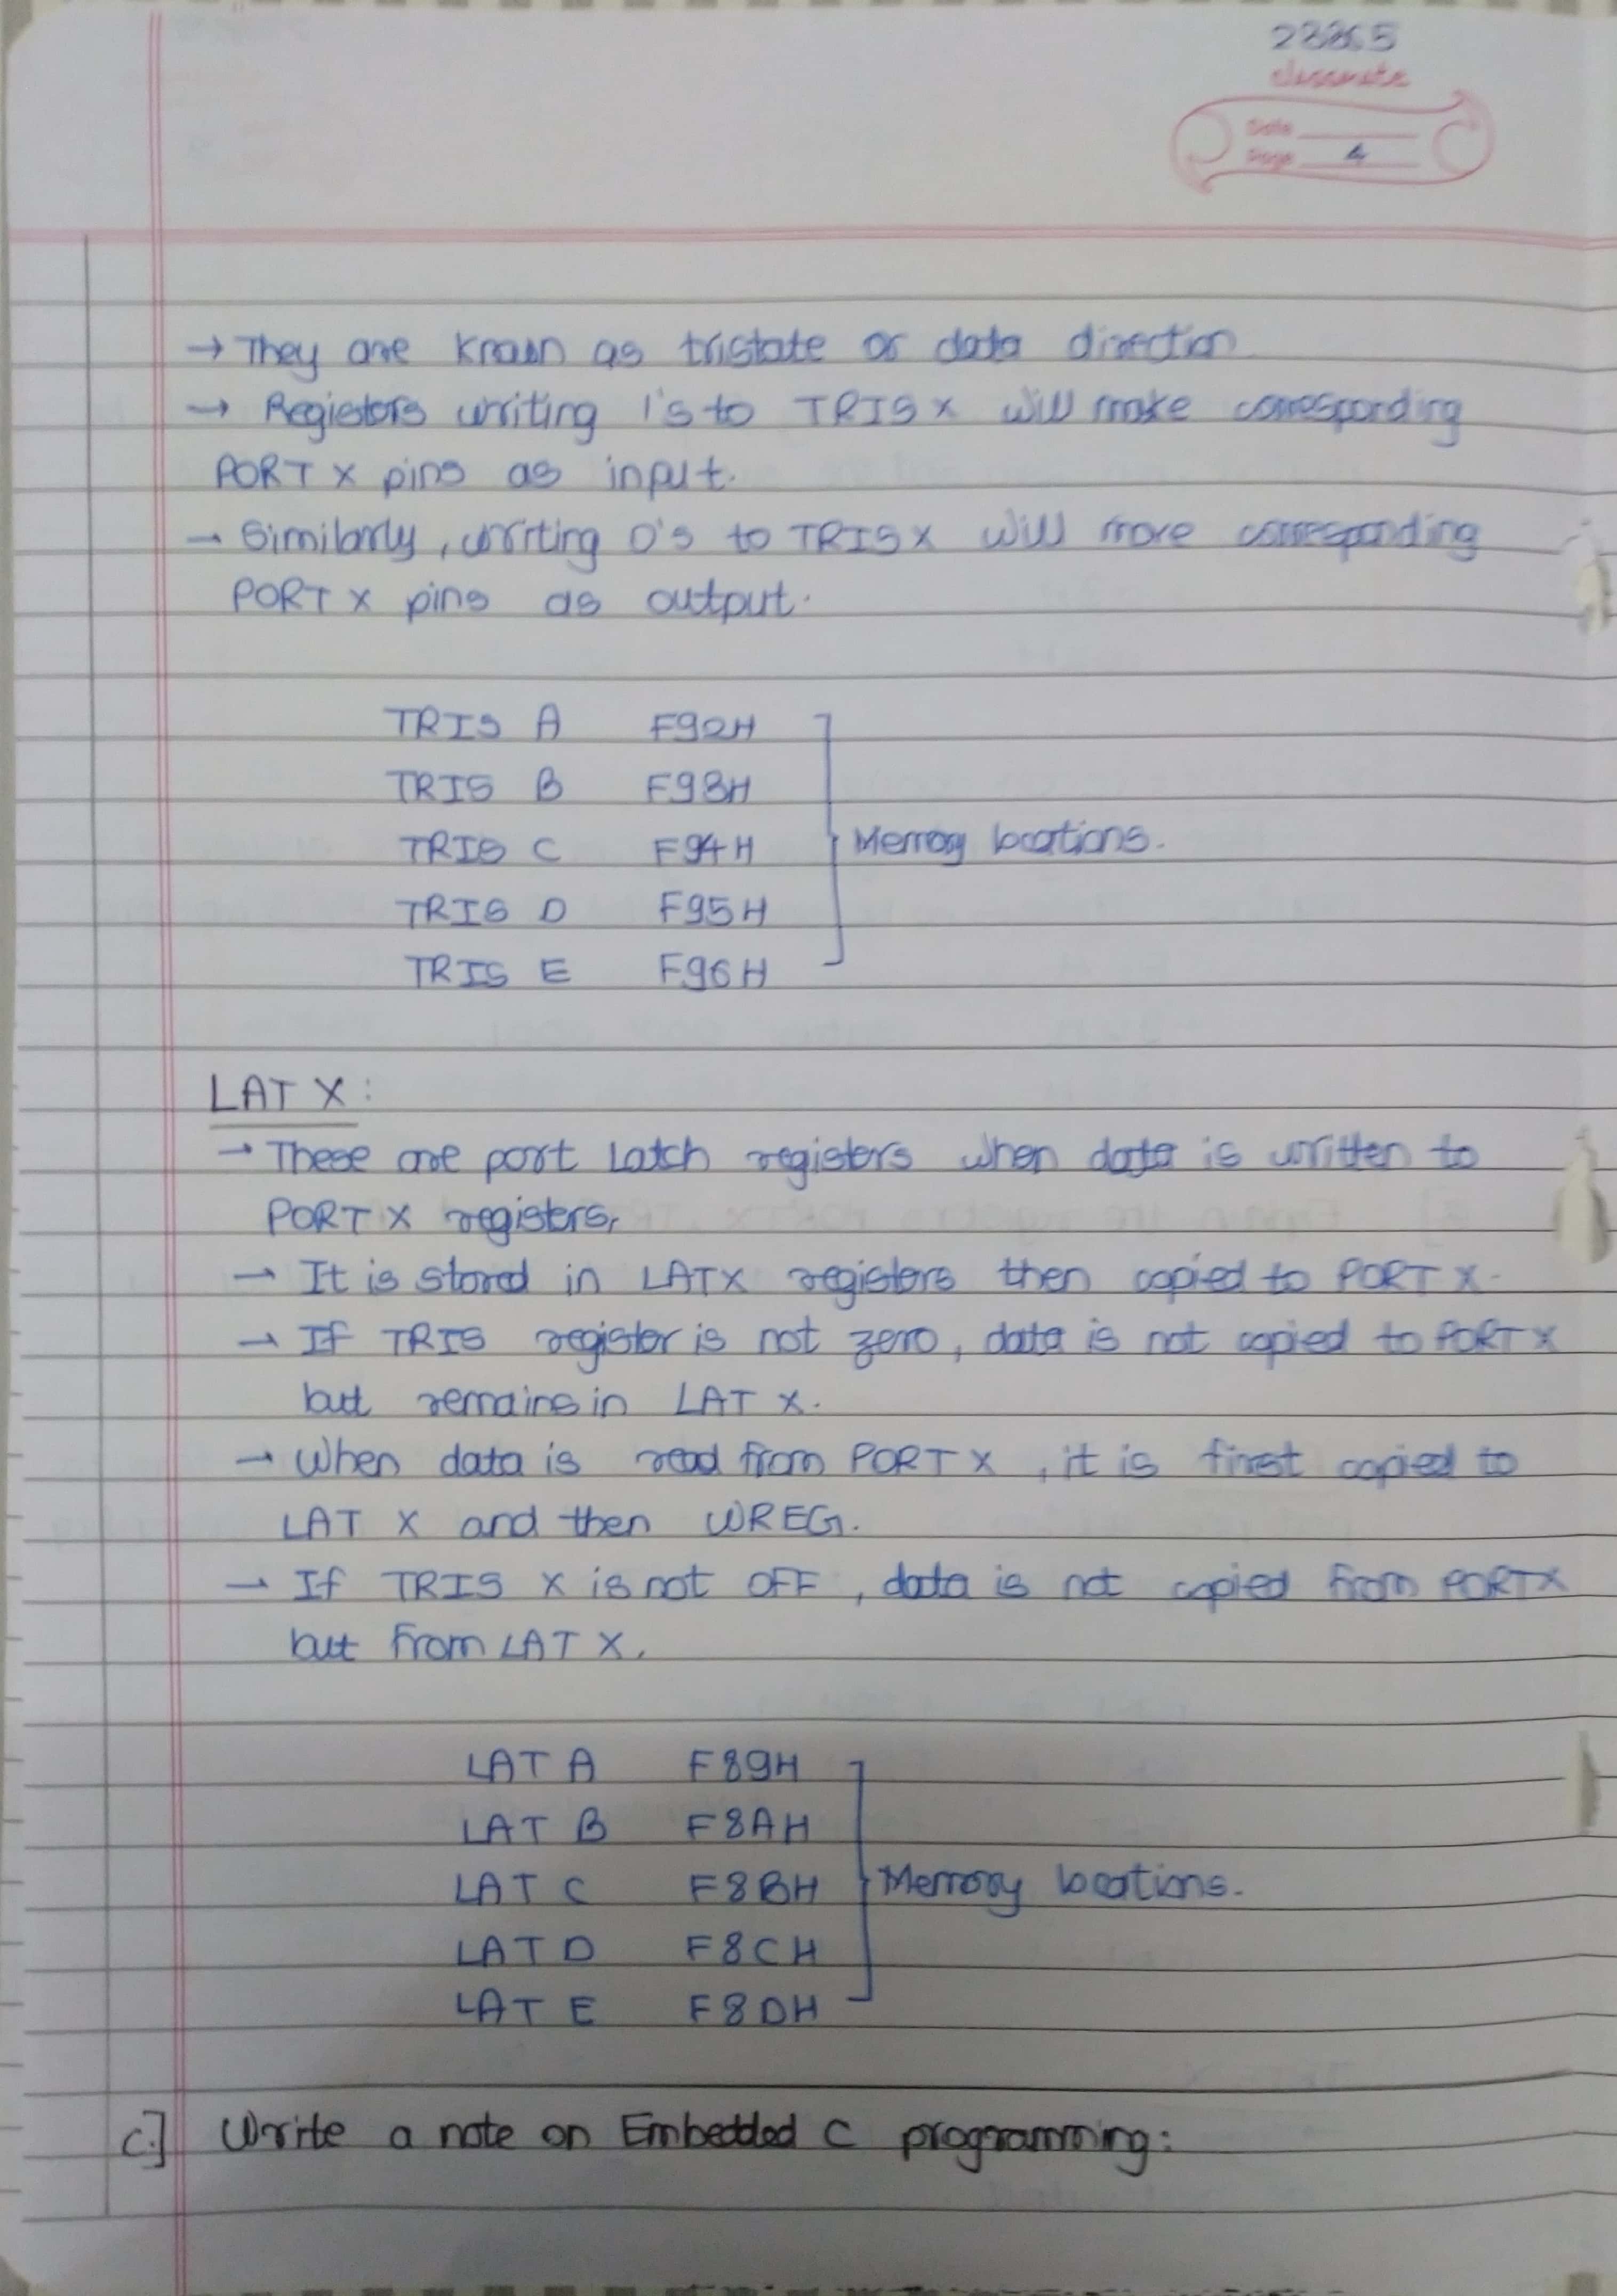 23365
classmate
Date
Page 4
→ They are known as tristate or data direction
→ Registors writing 1's to TRIS X will make corresponding
PORT X pins as input.
→ Similarly, writing 0's to TRIS X will more corresponding
PORT X pins as output.
TRIS A F92H
TRIS B F93H
TRIS C F94H Memory locations.
TRIS D F95H
TRIS E F96H
LAT X:
→ These are port Latch registers when data is written to
PORT X registers,
→ It is stored in LATX registers then copied to PORT X.
→ If TRIS register is not zero, data is not copied to PORT X
but remains in LAT X.
→ When data is read from PORT X, it is first copied to
LAT X and then WREG.
→ If TRIS X is not OFF, data is not copied from PORTX
but from LAT X.
LAT A F89H
LAT B F8AH
LAT C F8BH Memory locations.
LAT D F8CH
LAT E F8DH
c.] Write a note on Embedded C programming: